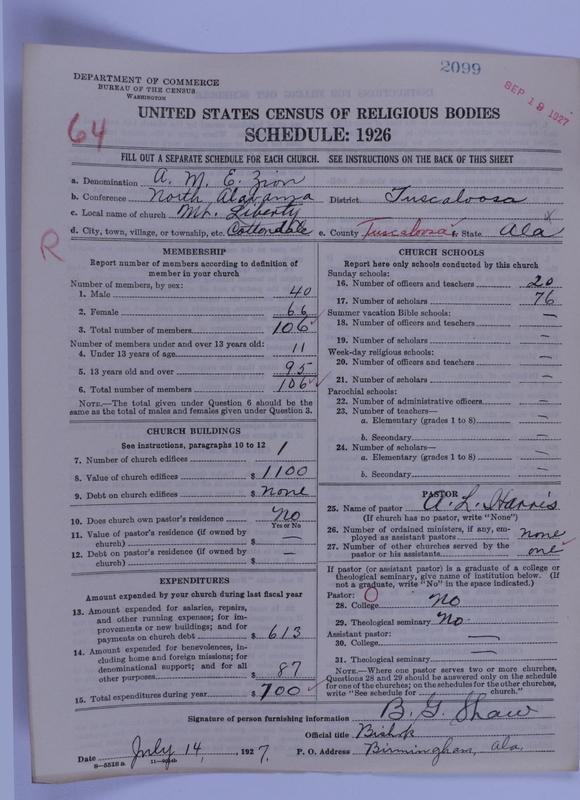 2099
SEP 19 1927
DEPARTMENT OF COMMERCE
BUREAU OF THE CENSUS
WASHINGTON
64
UNITED STATES CENSUS OF RELIGIOUS BODIES
SCHEDULE: 1926
FILL OUT A SEPARATE SCHEDULE FOR EACH CHURCH. SEE INSTRUCTIONS ON THE BACK OF THIS SHEET
a. Denomination A. M. E. Zion
b. Conference North Alabama District Tuscaloosa
c. Local name of church Mt. Liberty
d. City, town, village, or township, etc. Cottondale e. County Tuscaloosa f. State Ala
R
MEMBERSHIP
Report number of members according to definition of
member in your church
Number of members, by sex:
1. Male 40
2. Female 66
3. Total number of members 106
Number of members under and over 13 years old:
4. Under 13 years of age 11
5. 13 years old and over 95
6. Total number of members 106
NOTE.—The total given under Question 6 should be the
same as the total of males and females given under Question 3.
CHURCH BUILDINGS
See instructions, paragraphs 10 to 12
7. Number of church edifices 1
8. Value of church edifices $ 1100
9. Debt on church edifices $ None
10. Does church own pastor's residence No
Yes or No
11. Value of pastor's residence (if owned by
church) $ —
12. Debt on pastor's residence (if owned by
church) $ —
EXPENDITURES
Amount expended by your church during last fiscal year
13. Amount expended for salaries, repairs,
and other running expenses; for im-
provements or new buildings; and for
payments on church debt $ 613
14. Amount expended for benevolences, in-
cluding home and foreign missions; for
denominational support; and for all
other purposes $ 87
15. Total expenditures during year $ 700
CHURCH SCHOOLS
Report here only schools conducted by this church
Sunday schools:
16. Number of officers and teachers 20
17. Number of scholars 76
Summer vacation Bible schools: —
18. Number of officers and teachers
19. Number of scholars —
Week-day religious schools:
20. Number of officers and teachers —
21. Number of scholars —
Parochial schools:
22. Number of administrative officers —
23. Number of teachers—
a. Elementary (grades 1 to 8) —
b. Secondary —
24. Number of scholars—
a. Elementary (grades 1 to 8) —
b. Secondary —
PASTOR
25. Name of pastor A. L. Harris
(If church has no pastor, write "None")
26. Number of ordained ministers, if any, em-
ployed as assistant pastors none
27. Number of other churches served by the
pastor or his assistants one
If pastor (or assistant pastor) is a graduate of a college or
theological seminary, give name of institution below. (If
not a graduate, write "No" in the space indicated.)
Pastor: O
28. College No
29. Theological seminary No.
Assistant pastor:
30. College —
31. Theological seminary —
NOTE.—Where one pastor serves two or more churches,
Questions 28 and 29 should be answered only on the schedule
for one of the churches; on the schedules for the other churches,
write "See schedule for church."
Signature of person furnishing information B. G. Shaw
Official title Bishop
Date July 14, 1927. P. O. Address Birmingham, Ala.
8—5518a